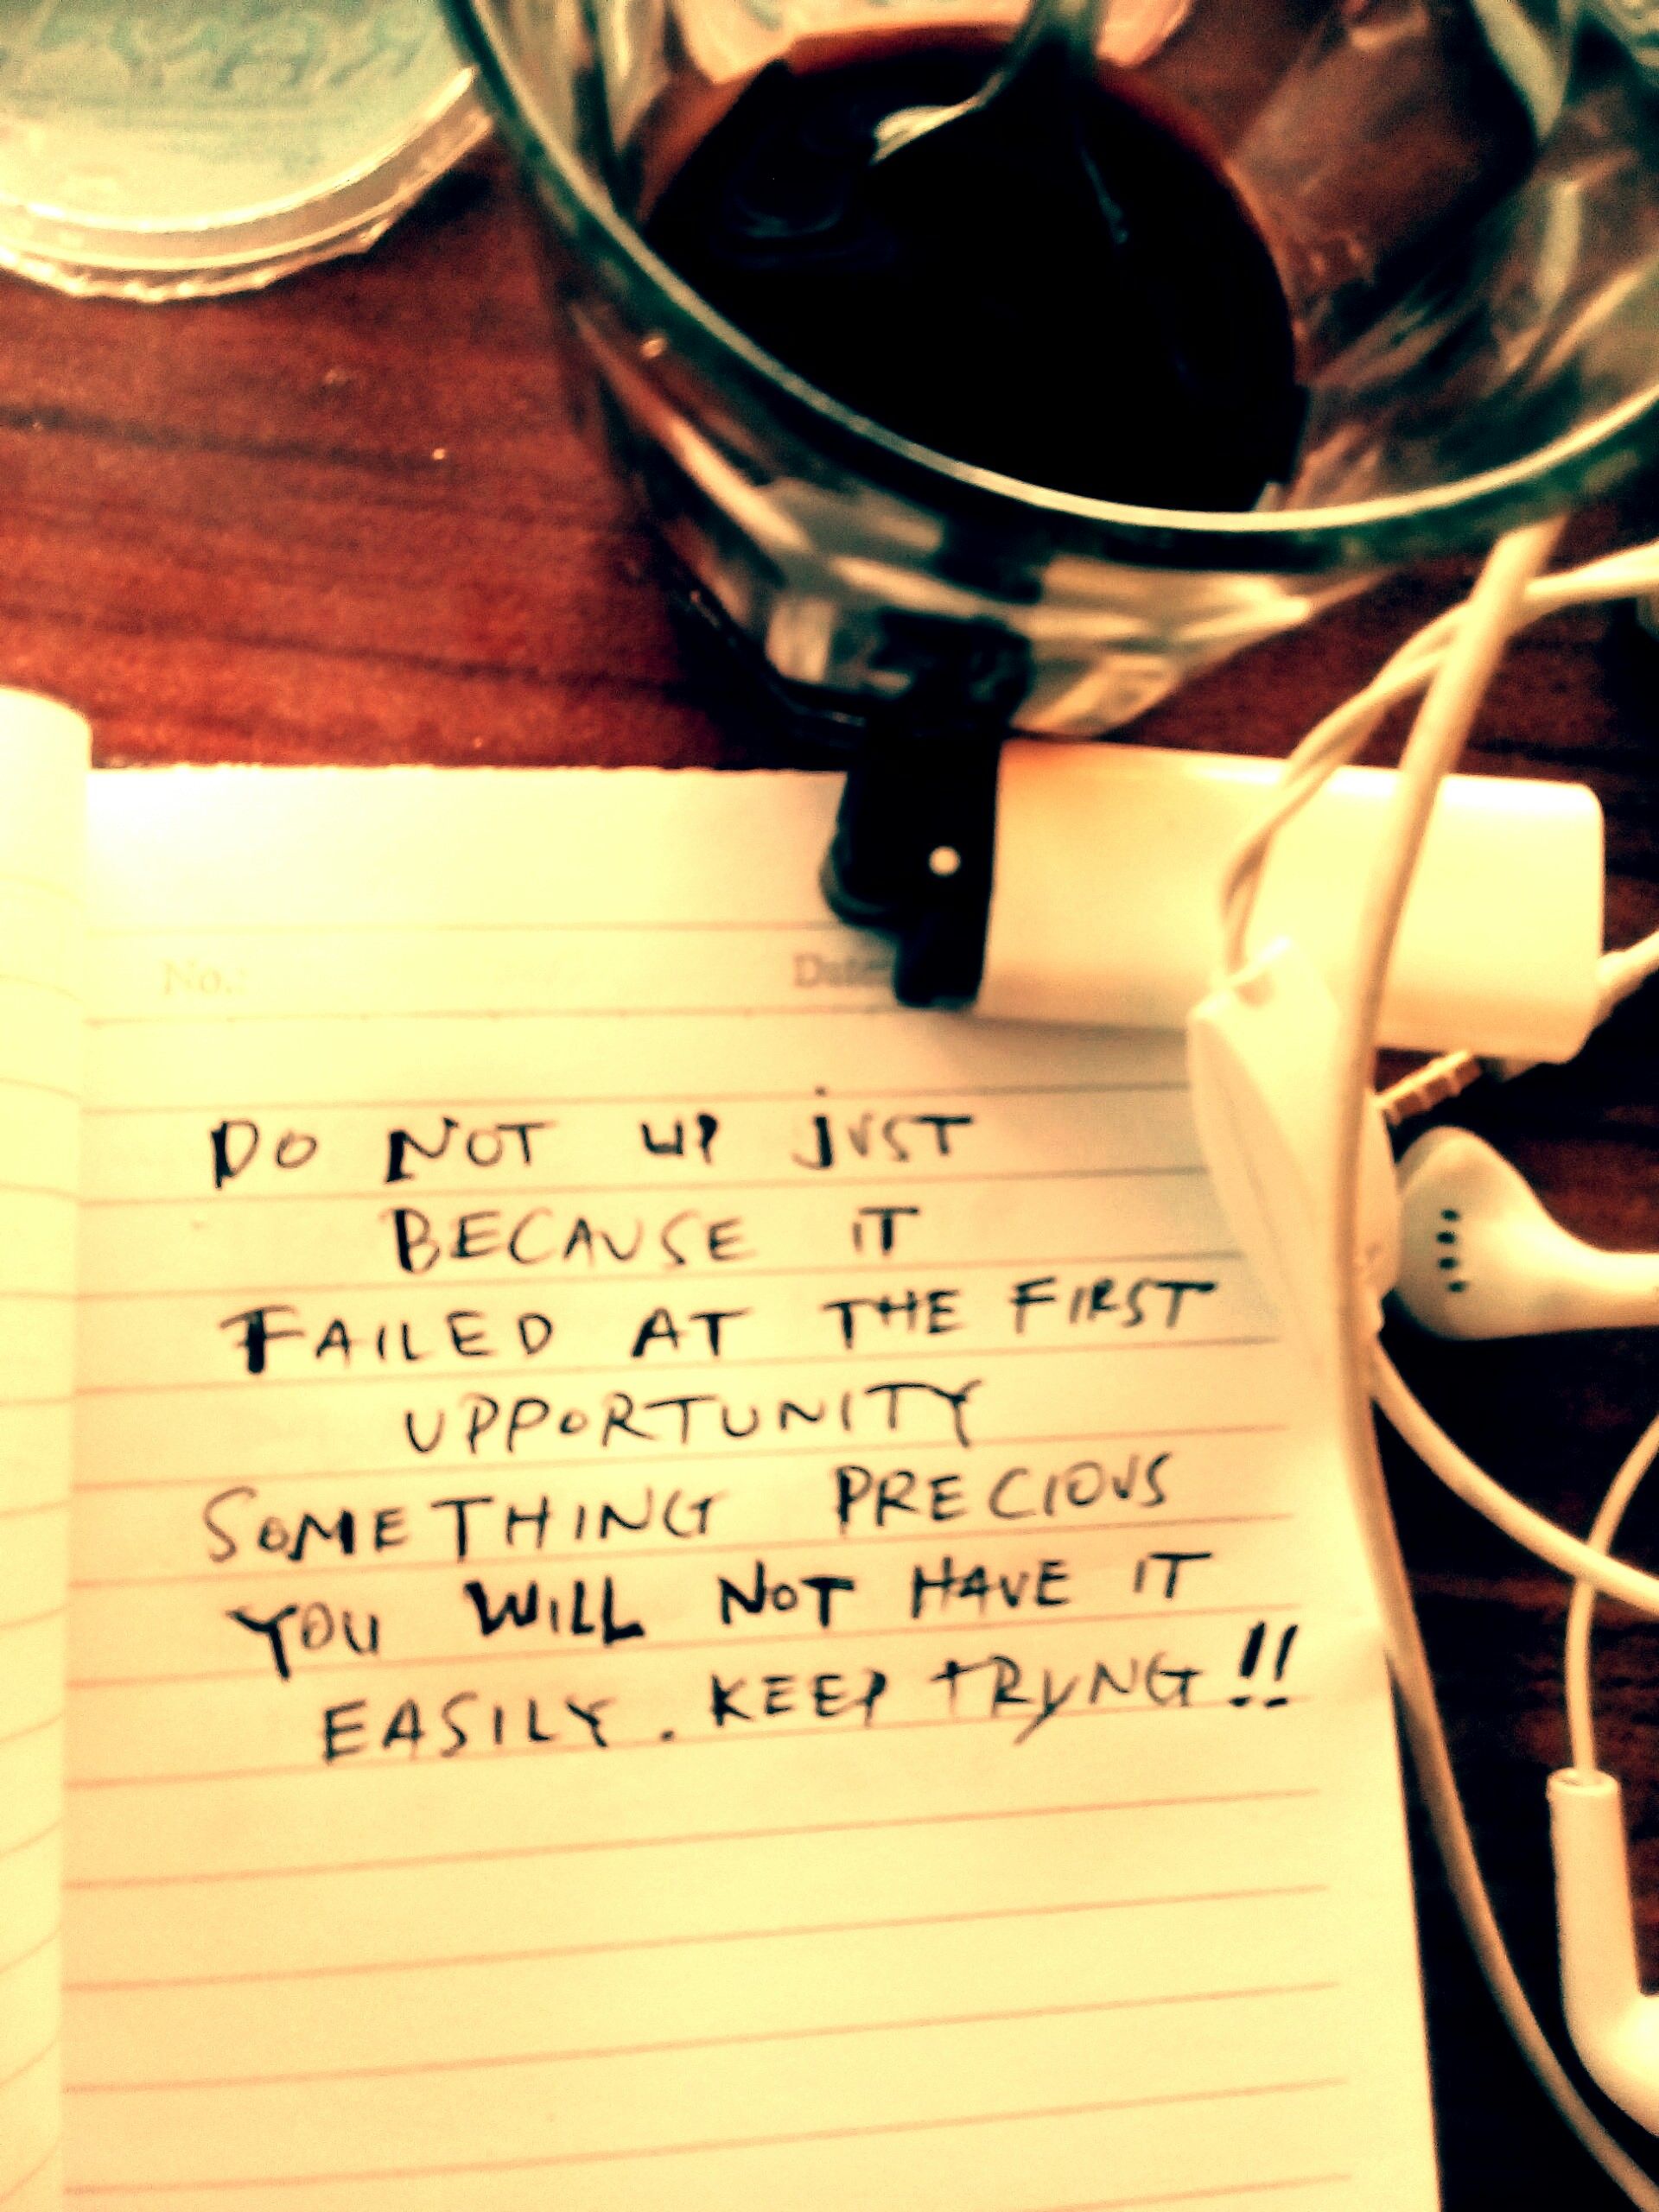 No.:
Date
DO NOT UP jUST
BECAUSE IT
FAILED AT THE FIRST
UPPORTUNITY
SOMETHING PRECIOUS
YOU WILL NOT HAVE IT
EASILY. KEEP TRYNG!!